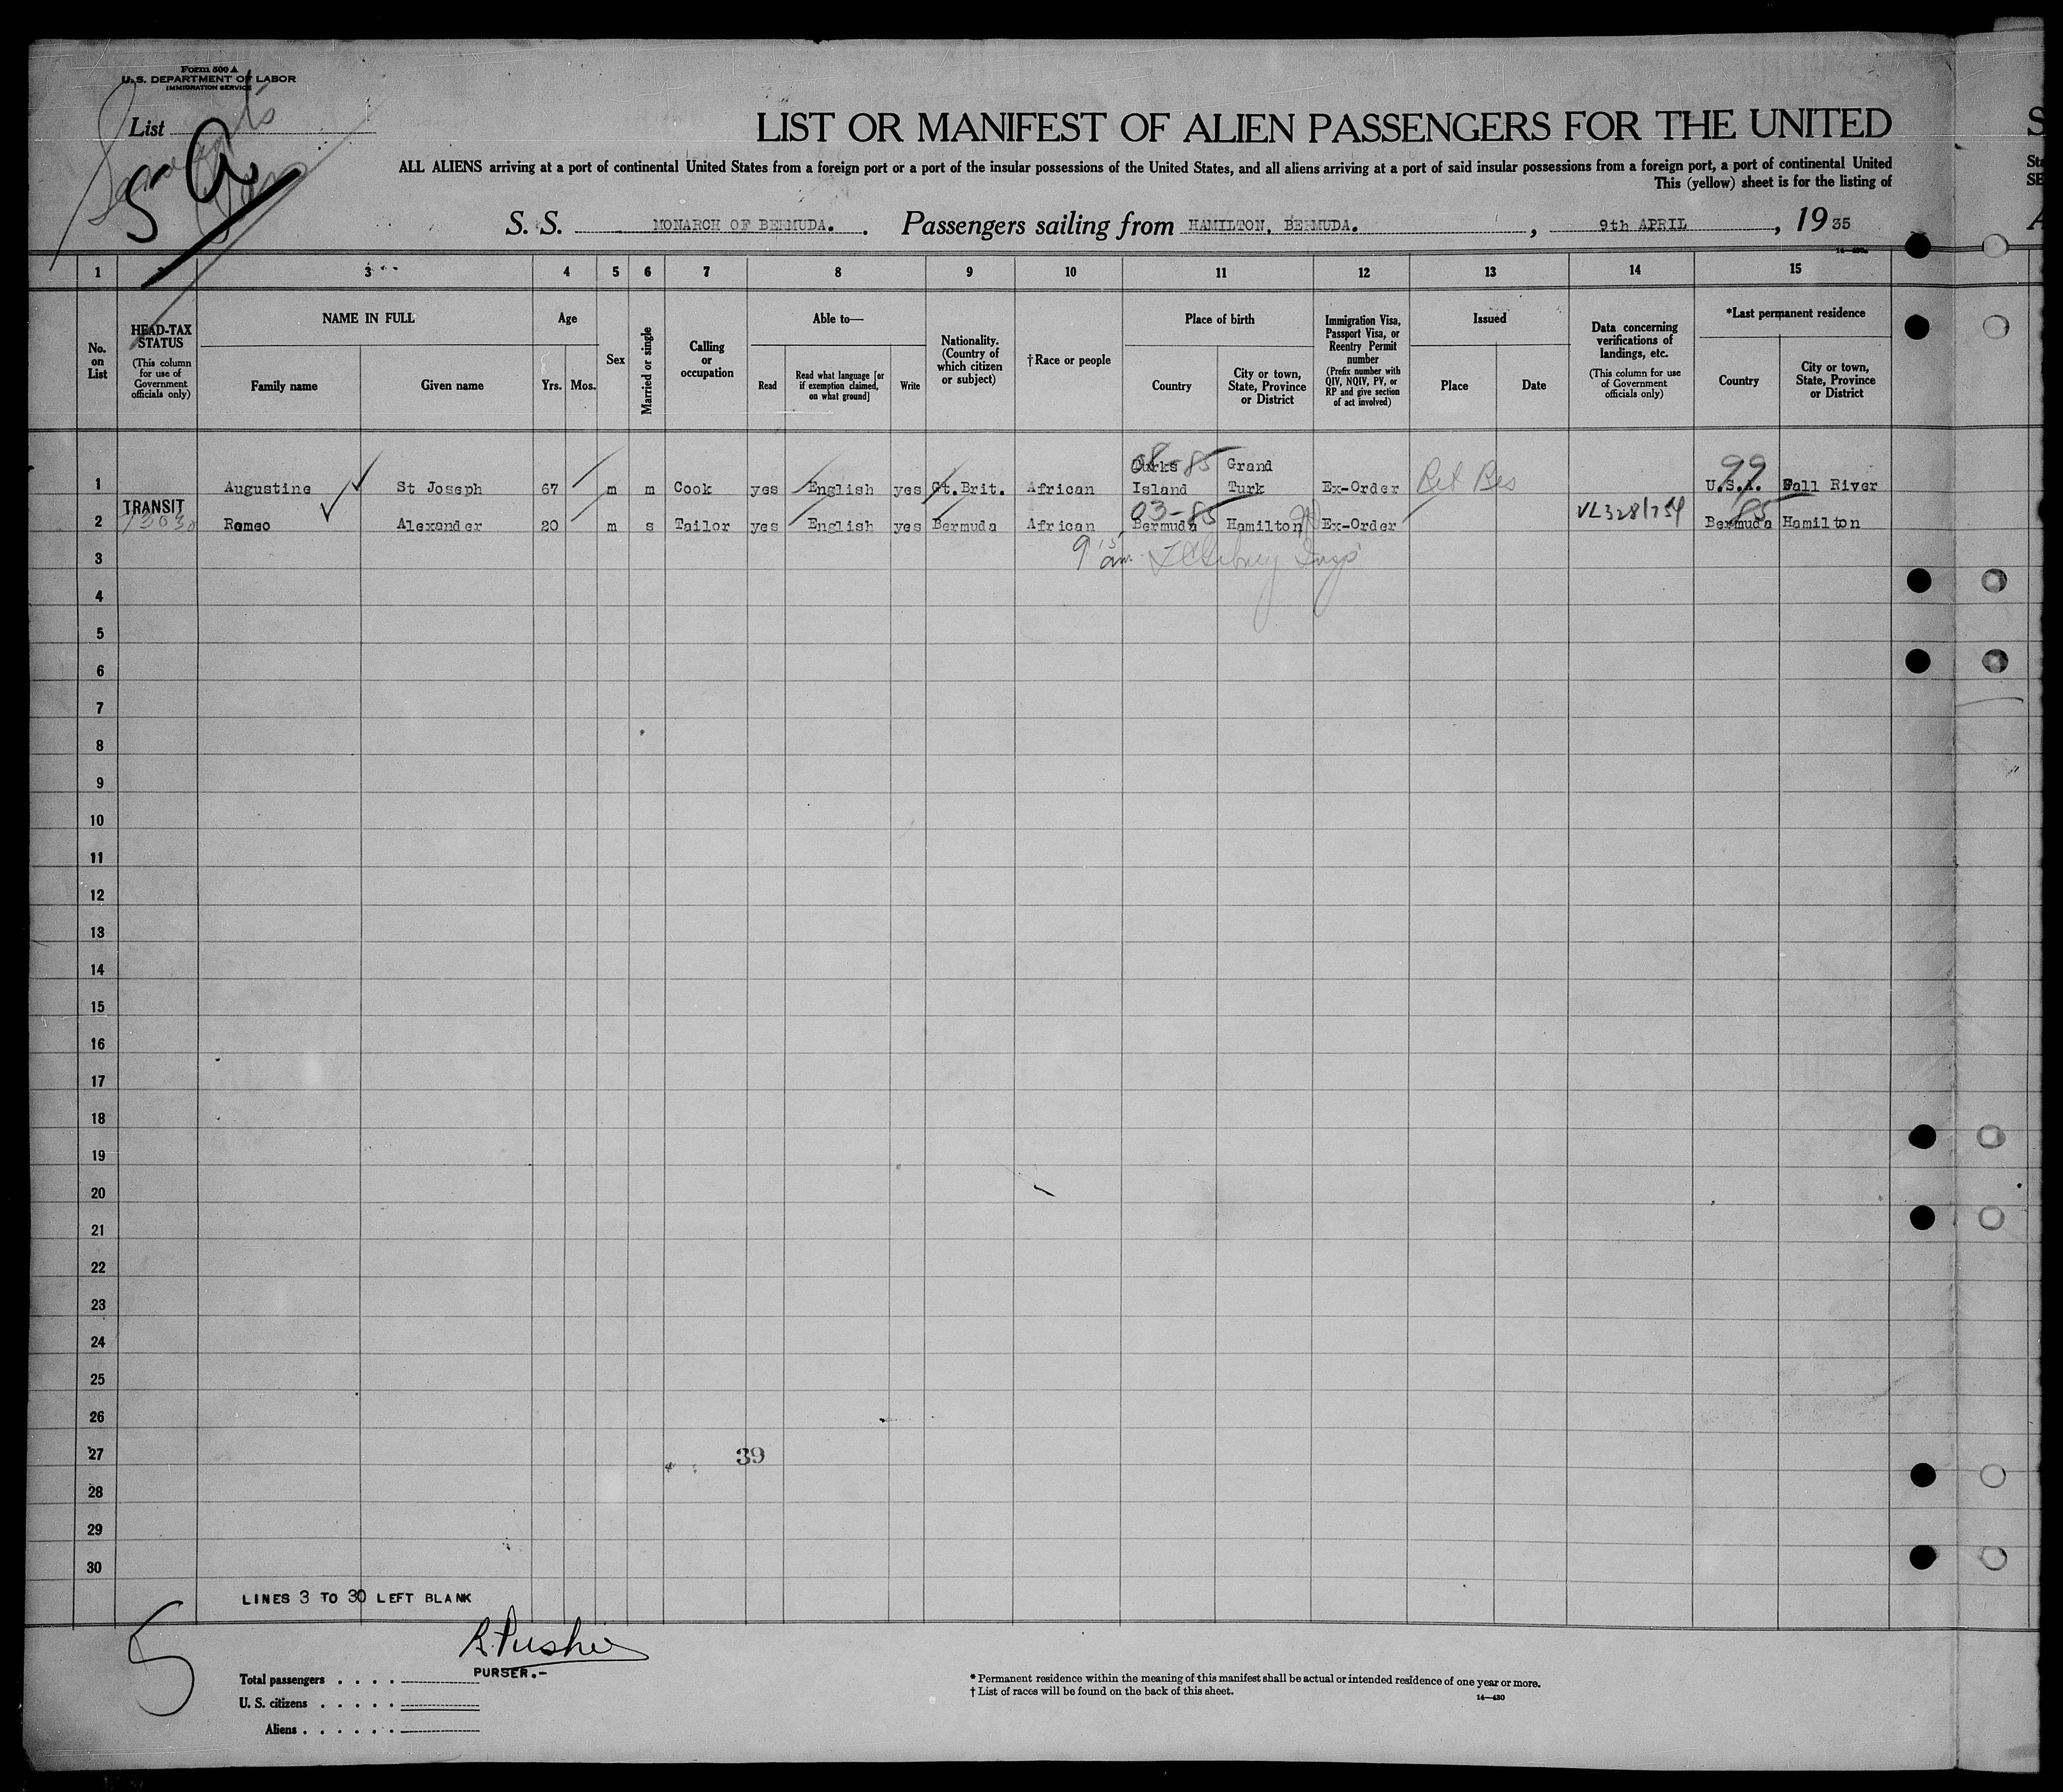 Form 500 A
U. S. DEPARTMENT OF LABOR
IMMIGRATION SERVICE
List
5 a
LIST OR MANIFEST OF ALIEN PASSENGERS FOR THE UNITED
ALL ALIENS arriving at a port of continental United States from a foreign port or a port of the insular possessions of the United States, and all aliens arriving at a port of said insular possessions from a foreign port, a port of continental United
This (yellow) sheet is for the listing of
S. S. MONARCH OF BERMUDA. Passengers sailing from HAMILTON, BERMUDA. , 9th APRIL , 1935
1 3 4 5 6 7 8 9 10 11 12 13 14 15
No. on List
HEAD-TAX STATUS
(This column for use of Government officials only)
NAME IN FULL
Family name
Given name
Age
Yrs.
Mos.
Sex
Married or single
Calling or occupation
Able to—
Read
Read what language [or if exemption claimed, on what ground]
Write
Nationality. (Country of which citizen or subject)
†Race or people
Place of birth
Country
City or town, State, Province or District
Immigration Visa, Passport Visa, or Reentry Permit number
(Prefix number with QIV, NQIV, PV, or RP and give section of act involved)
Issued
Place
Date
Data concerning verifications of landings, etc.
(This column for use of Government officials only)
*Last permanent residence
Country
City or town, State, Province or District
08-85
1 Augustine St Joseph 67 m m Cook yes English yes Gt.Brit. African Turks Island Grand Turk Ex-Order Ret Res 99 U.S.A. Fall River
TRANSIT
03-85
2 Romeo Alexander 20 m s Tailor yes English yes Bermuda African Bermuda Hamilton Ex-Order VL328/754 85 Bermuda Hamilton
3 9 15 am
4
5
6
7
8
9
10
11
12
13
14
15
16
17
18
19
20
21
22
23
24
25
26
27 39
28
29
30
LINES 3 TO 30 LEFT BLANK
5
PURSER.-
Total passengers . . . .
U. S. citizens . . . . .
Aliens . . . . . .
* Permanent residence within the meaning of this manifest shall be actual or intended residence of one year or more.
† List of races will be found on the back of this sheet.
14—430